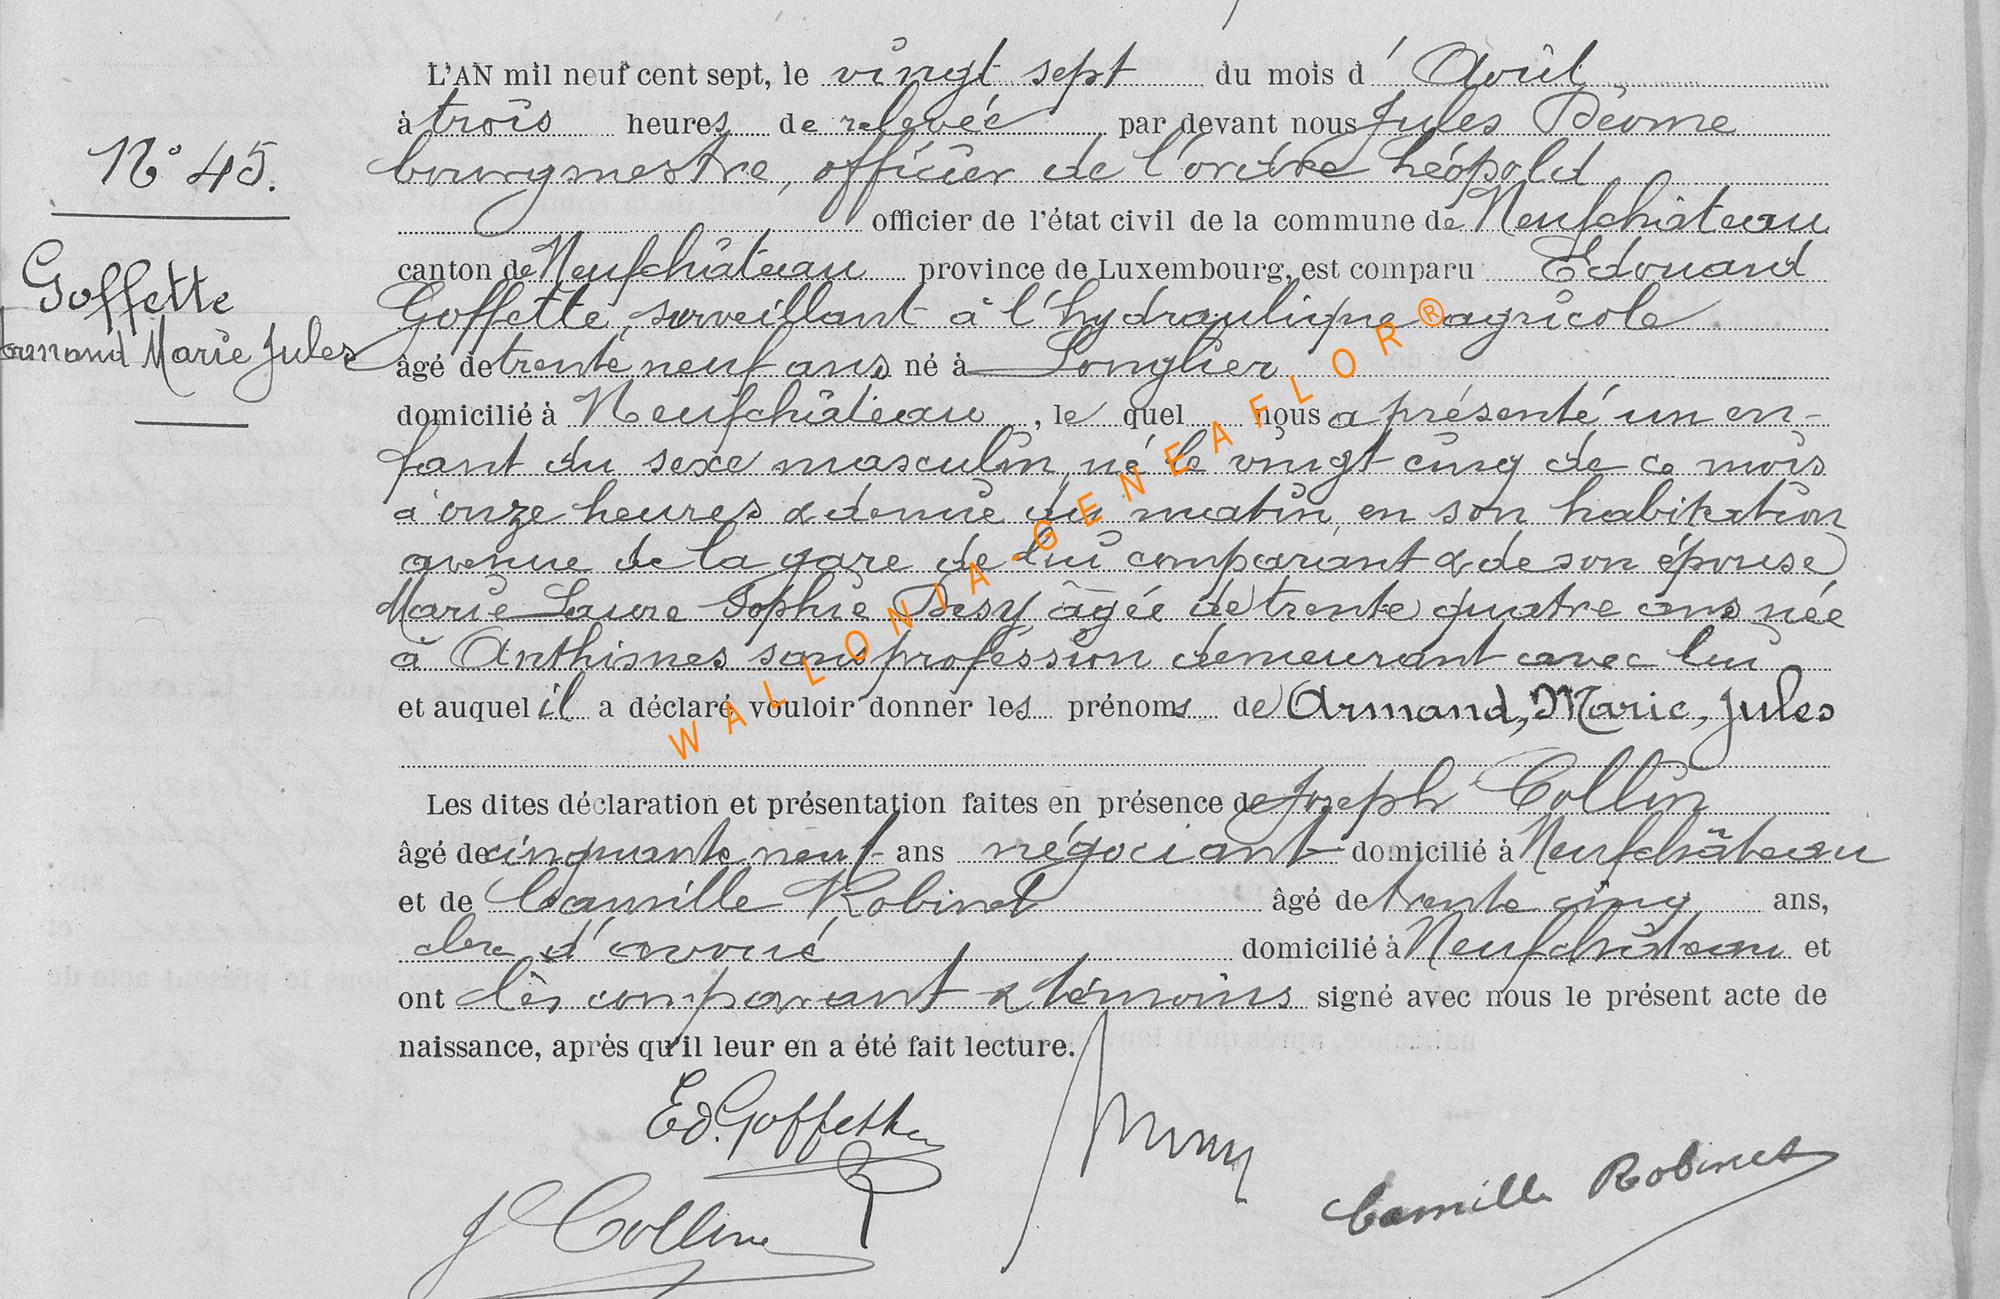 L'AN mil neuf cent sept, le vingt sept du mois d' Août
à trois heures de relevée par devant nous Jules
N° 45.
bourgmestre, officier de l'ordre Léopold
officier de l'état civil de la commune de Neufchâteau
canton de Neufchâteau province de Luxembourg, est comparu Edouard
Goffette
Goffette, surveillant à l'hydraulique agricole
Armand Marie Jules
âgé de trente neuf ans né à Longlier
domicilié à Neufchâteau, le quel nous a présenté un en-
fant du sexe masculin, né le vingt cinq de ce mois
à onze heures & demie du matin, en son habitation
avenue de la gare de lui comparant & de son épouse
Marie Laure Sophie âgée de trente quatre ans née
à Anthisnes sans profession demeurant avec lui
et auquel il a déclaré vouloir donner les prénoms de Armand, Marie, Jules
WALLONIA-GENEAFLOR®
Les dites déclaration et présentation faites en présence de Joseph Collin
âgé de cinquante neuf ans négociant domicilié à Neufchâteau
et de Camille Robinet âgé de trente cinq ans,
clerc d'avoué domicilié à Neufchâteau et
ont les comparant & témoins signé avec nous le présent acte de
naissance, après qu'il leur en a été fait lecture.
Ed. Goffette
Camille Robinet
J Collin